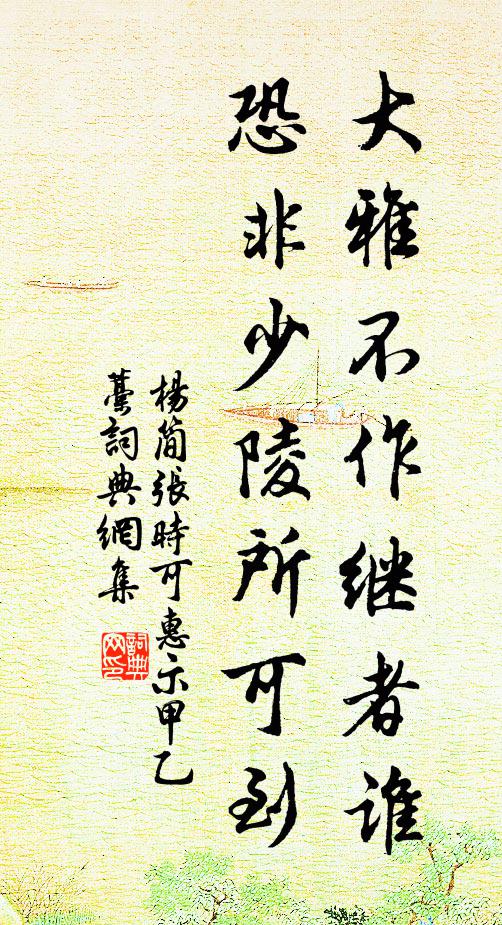 大雅不作继者谁
恐非少陵所可到
楊簡張時可惠示甲乙
藁詞典網集
詞典网印